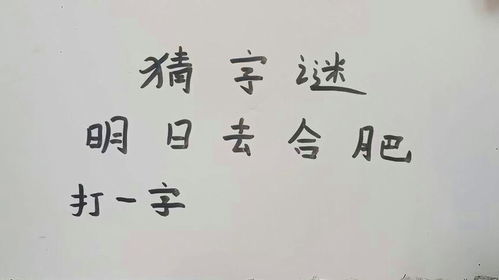 猜字谜
明日去合肥
打一字